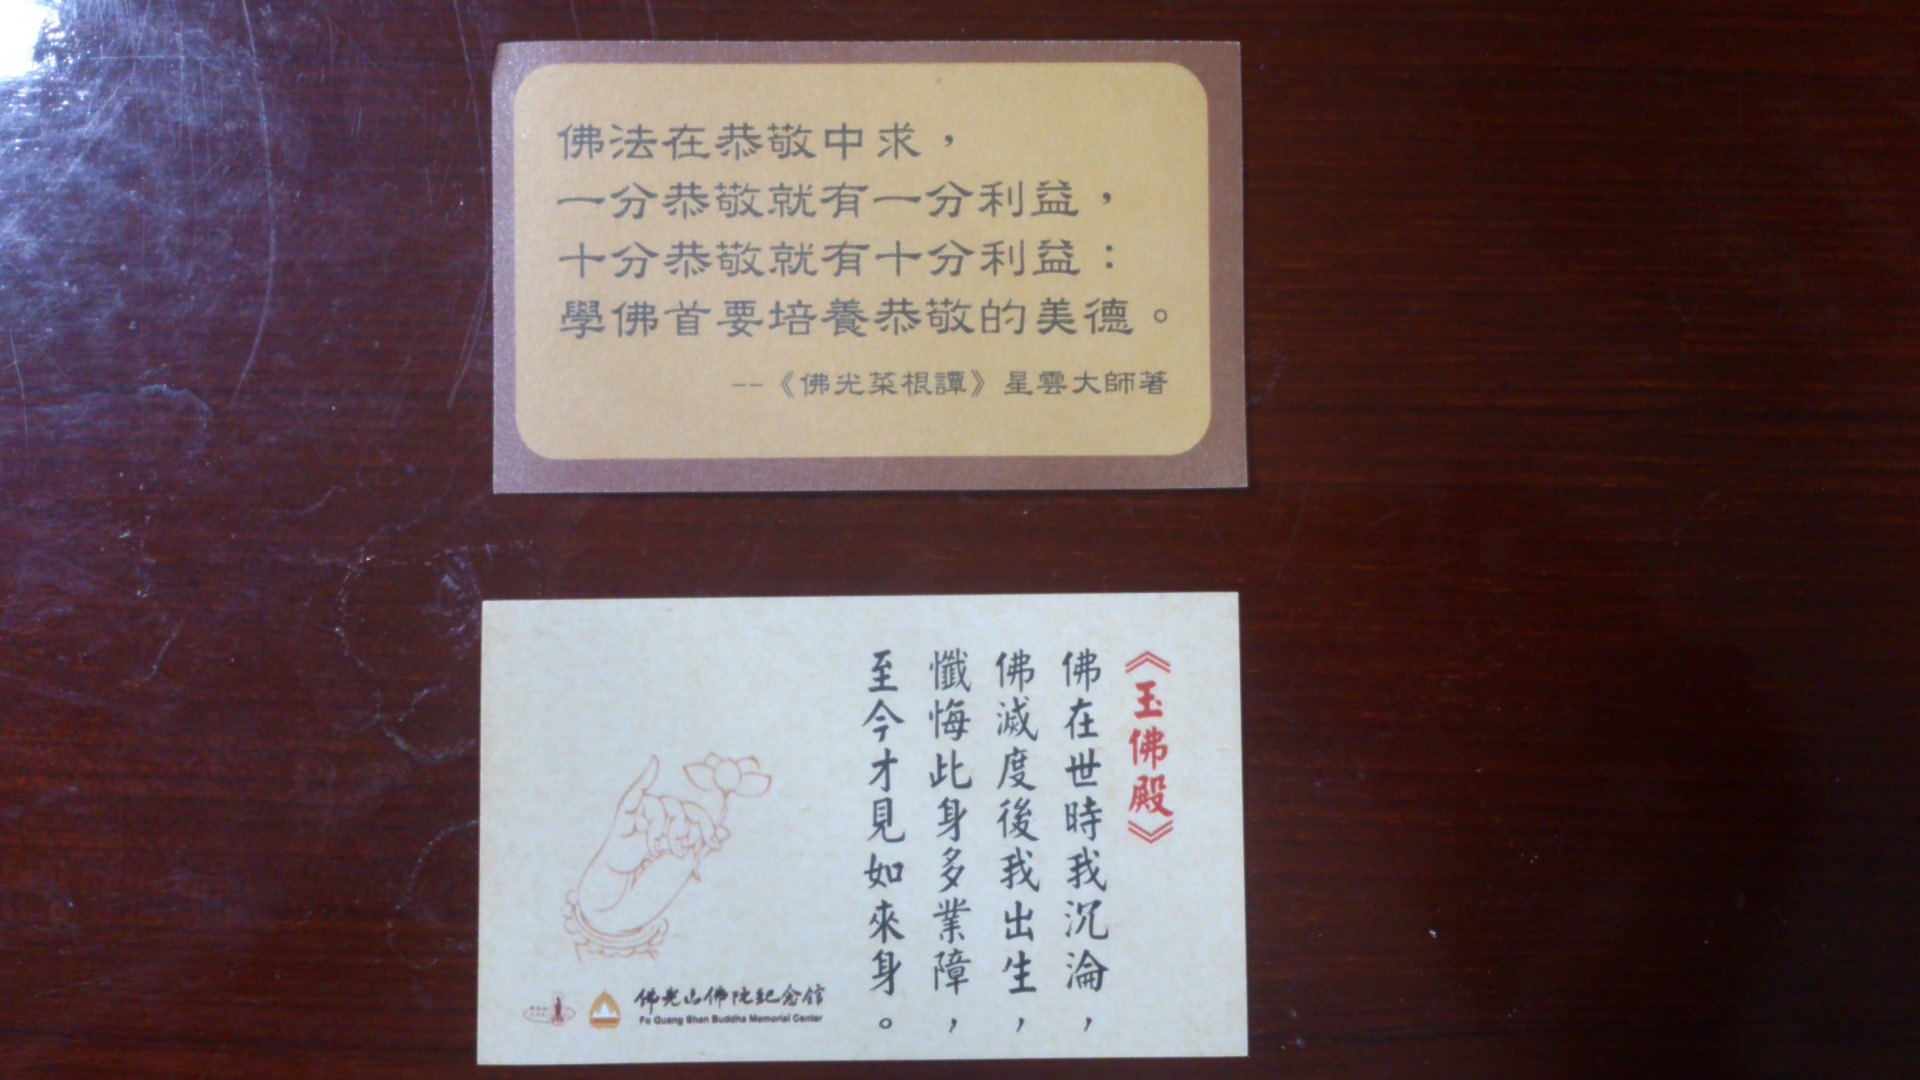 佛法在恭敬中求，
一分恭敬就有一分利益，
十分恭敬就有十分利益：
學佛首要培養恭敬的美德。
--《佛光菜根譚》星雲大師著
《玉佛殿》
佛在世時我沉淪，
佛滅度後我出生，
懺悔此身多業障，
至今才見如來身。
佛光山佛陀紀念館
Fo Guang Shan Buddha Memorial Center